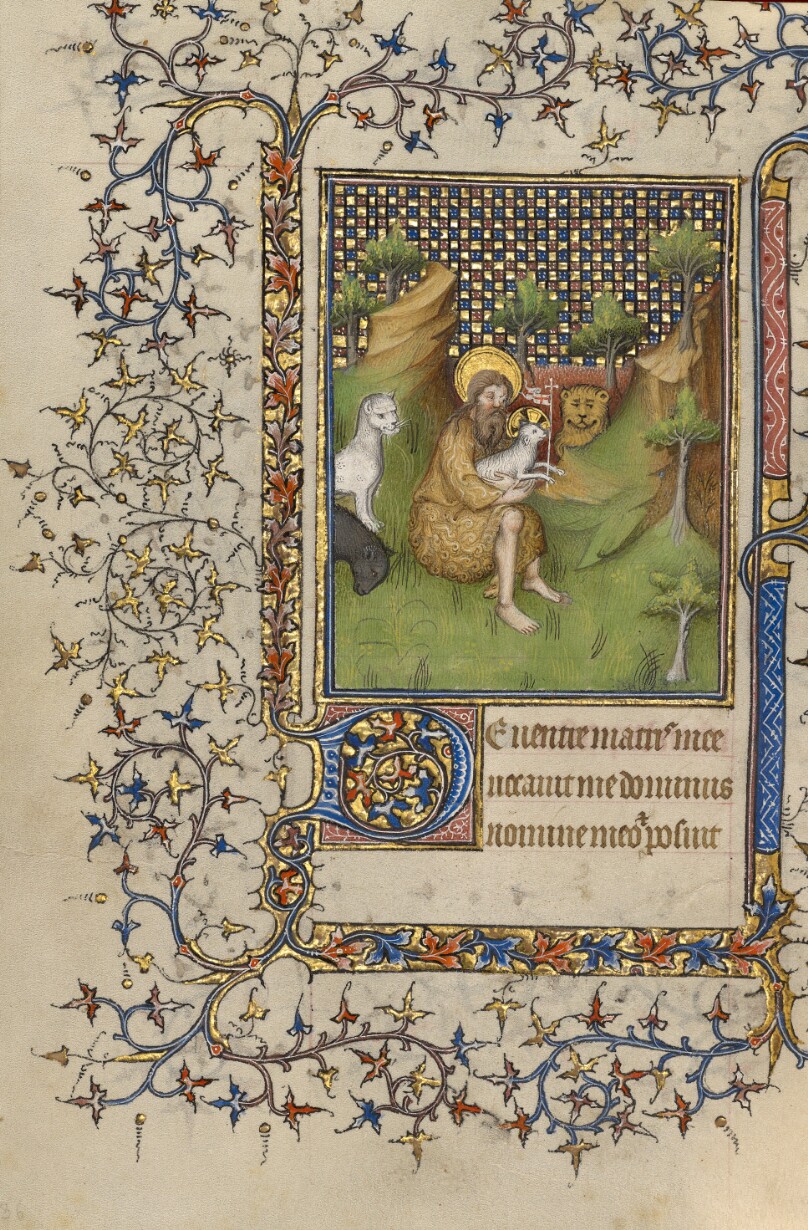 De uentre matris mee
uocauit me dominus
nomine meo et posuit